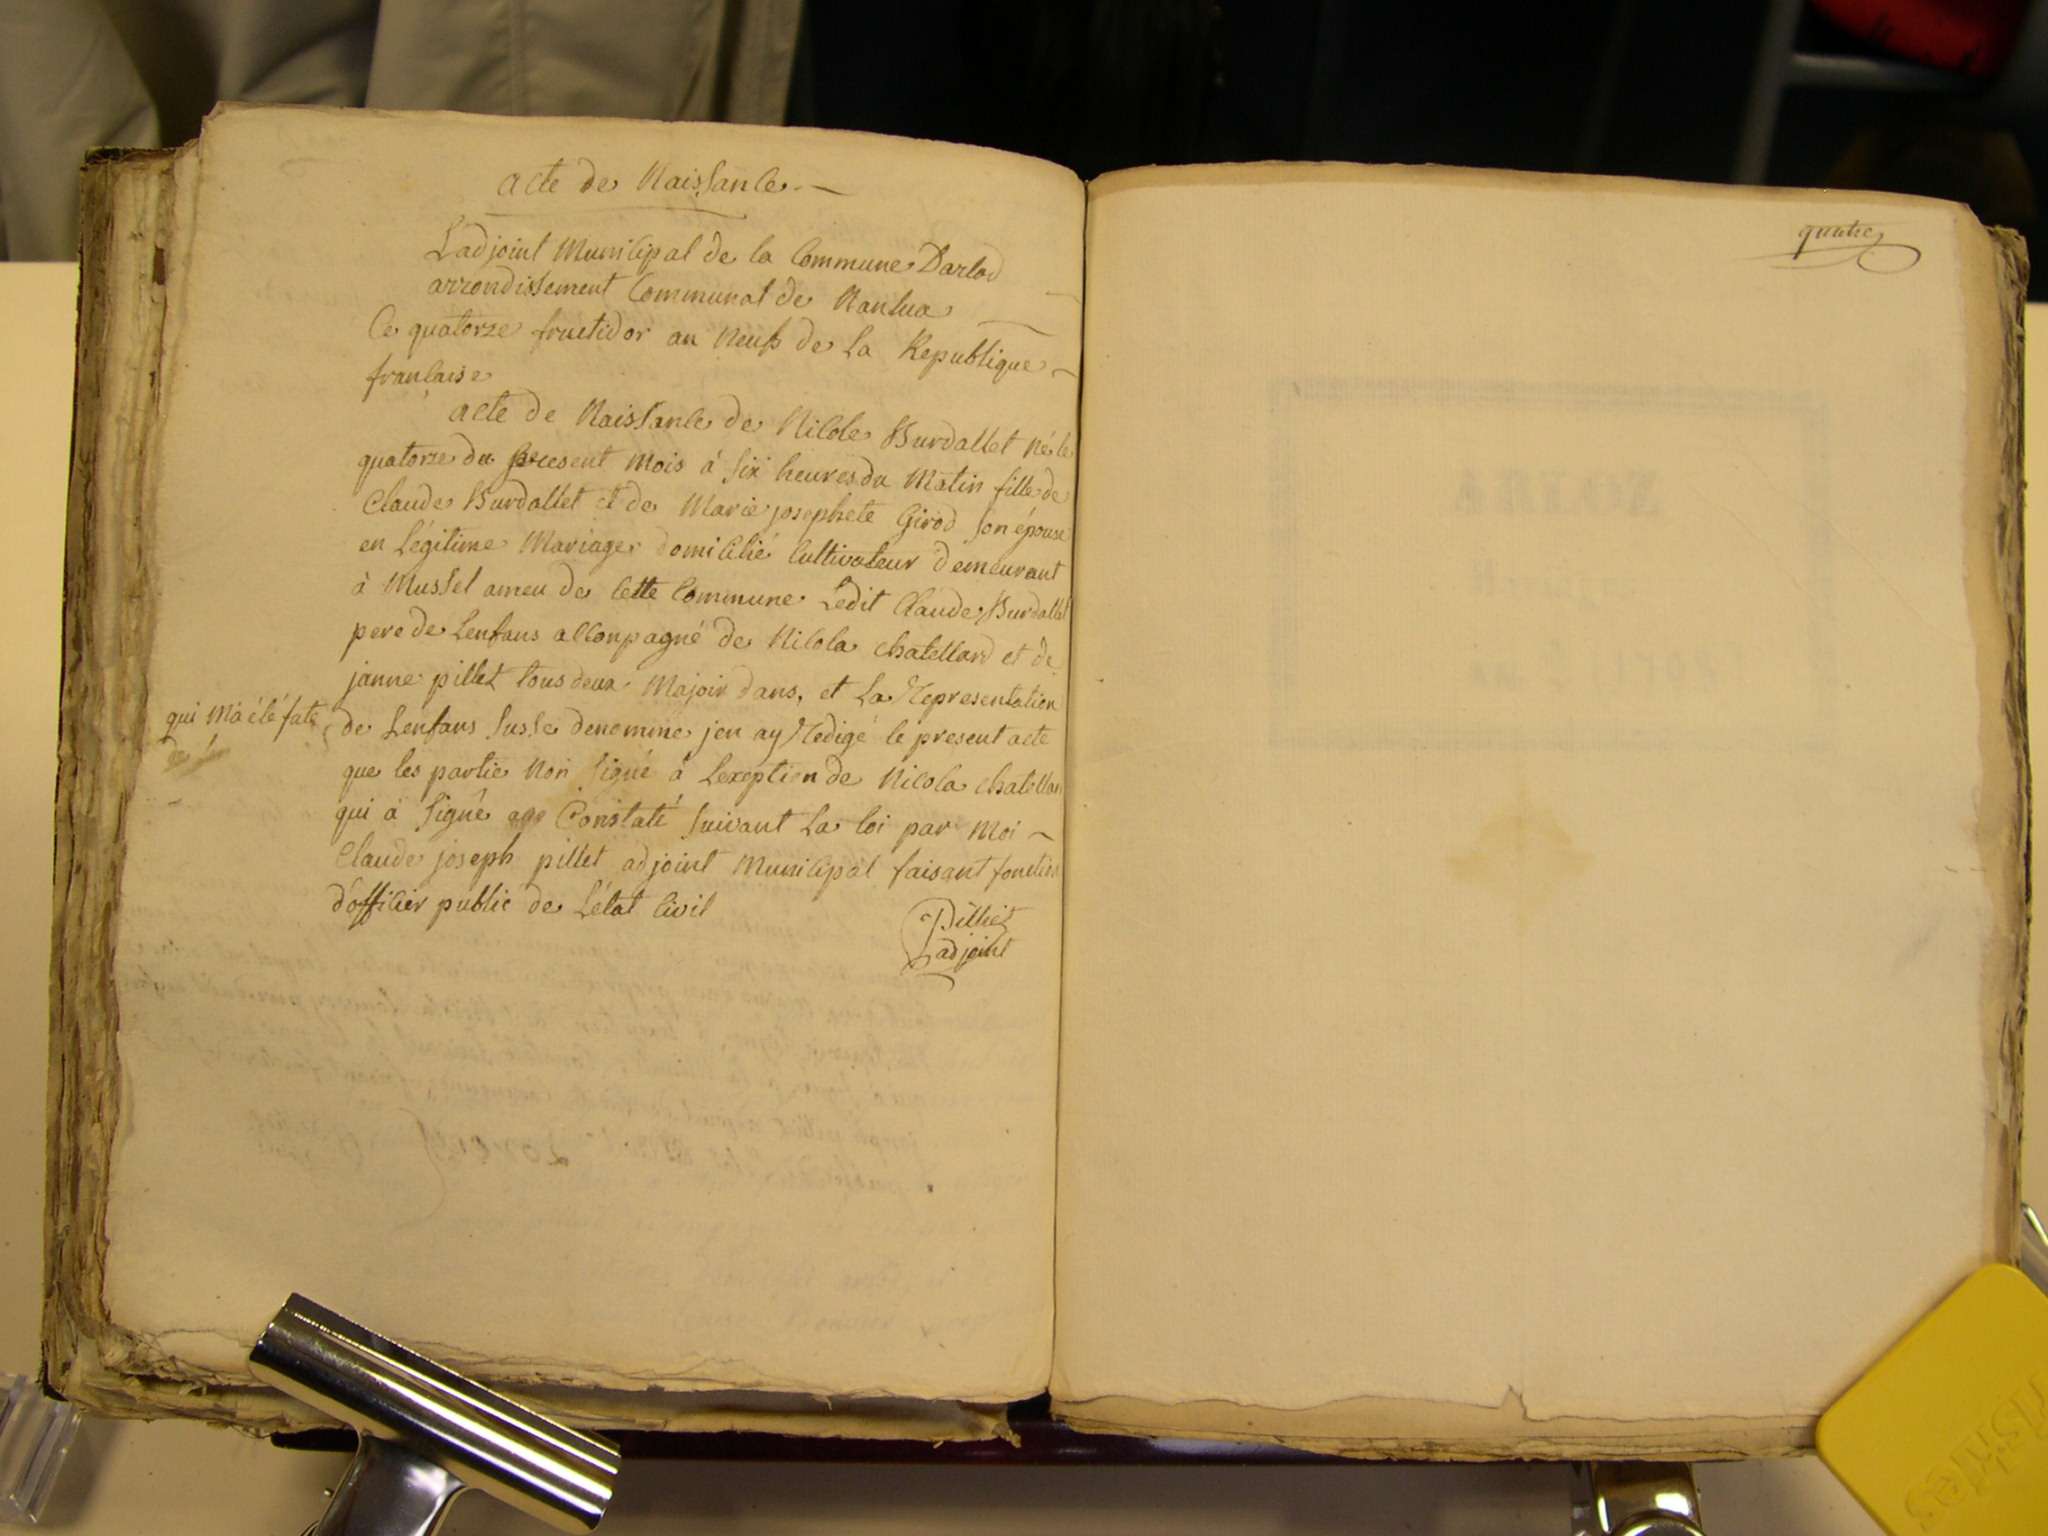 acte de Naissance
L'adjoint Municipal de la Commune Darlod
arrondissement Communal de Nantua
Ce quatorze fructidor an Neuf de La Republique
française
acte de Naissance de Nicole Burdallet né le
quatorze du present Mois á six heures du Matin fille de
Claude Burdallet et de Marie josephete Girod son épouse
en Légitime Mariage domicilié Cultivateur demeurant
à Mussel ameu de cette Commune Ledit Claude Burdallet
pere de Lenfans acconpagné de Nicola chatellard et de
janne pillet tous deux Majoir dans, et La Representation
qui Má été fate
de Lenfans susse denomme jen ay Redigé le present acte
que les partie Non signé á Lexeption de Nicola chatellar
qui á signé Constaté suivant La loi par Moi
Claude joseph pillet adjoint Municipal faisant fonction
d'officier public de L'état Civil
Pilliet
adjoint
quatre